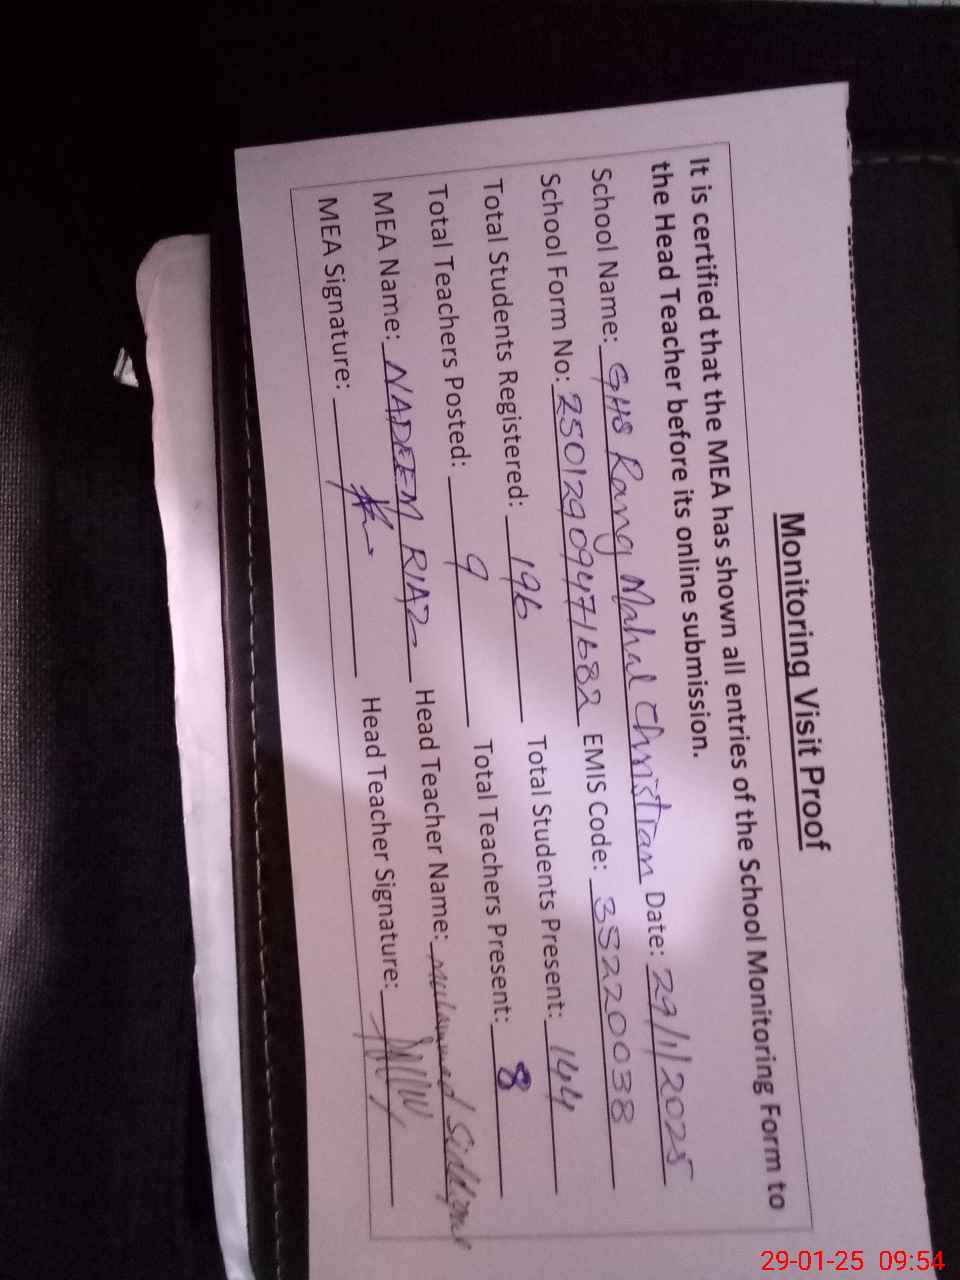 Monitoring Visit Proof
It is certified that the MEA has shown all entries of the School Monitoring Form to
the Head Teacher before its online submission.
School Name: GHS Rang Mahal Christian Date: 29/1/2025
School Form No: 25012909471682 EMIS Code: 35220038
Total Students Registered: 196 Total Students Present: 144
Total Teachers Posted: 9 Total Teachers Present: 8
MEA Name: NADEEM RIAZ Head Teacher Name: Muhammad
MEA Signature: Head Teacher Signature:
29-01-25 09:54